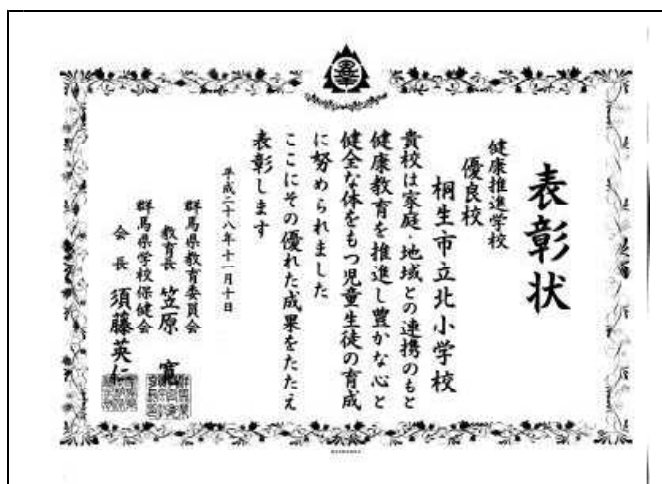 表彰状
健康推進学校
優良校
桐生市立北小学校
貴校は家庭・地域との連携のもと
健康教育を推進し豊かな心と
健全な体をもつ児童生徒の育成
に努められました
ここにその優れた成果をたたえ
表彰します
平成二十八年十一月十日
群馬県教育委員会
教育長 笠原 寛
群馬県学校保健会
会長 須藤英仁